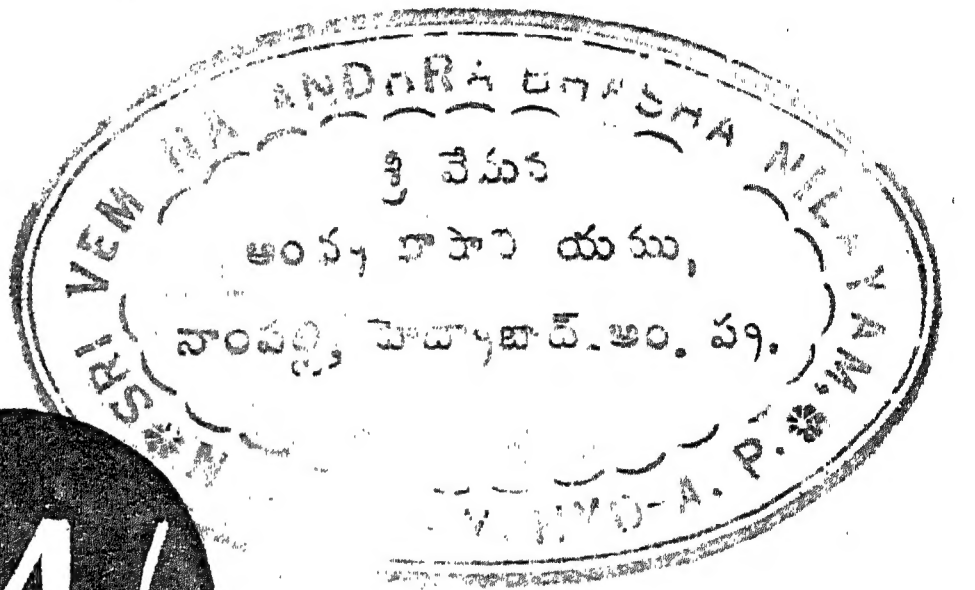 SRI VEM NA ANDHRA BHASHA NILAYAM,
శ్రీ వేమన
యము,
నాంపల్లి, హైద్రాబాద్-ఆం. ప్ర.
HYD-A. P.